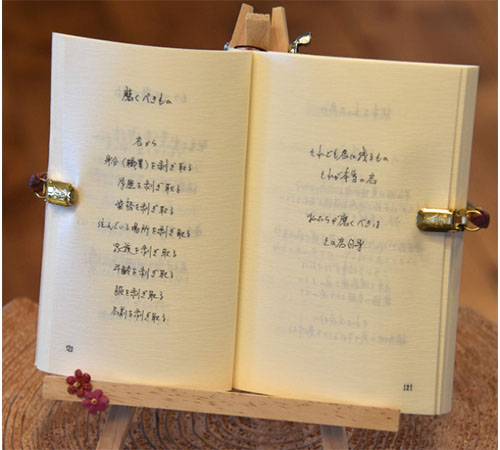 磨くべきもの
君から
身分(職業)を剥ぎ取る
学歴を剥ぎ取る
資格を剥ぎ取る
住んでいる場所を剥ぎ取る
家族を剥ぎ取る
年齢を剥ぎ取る
服を剥ぎ取る
を剥ぎ取る
それでも君に残るもの
それが本当の君
私たちが磨くべきは
その君自身
121